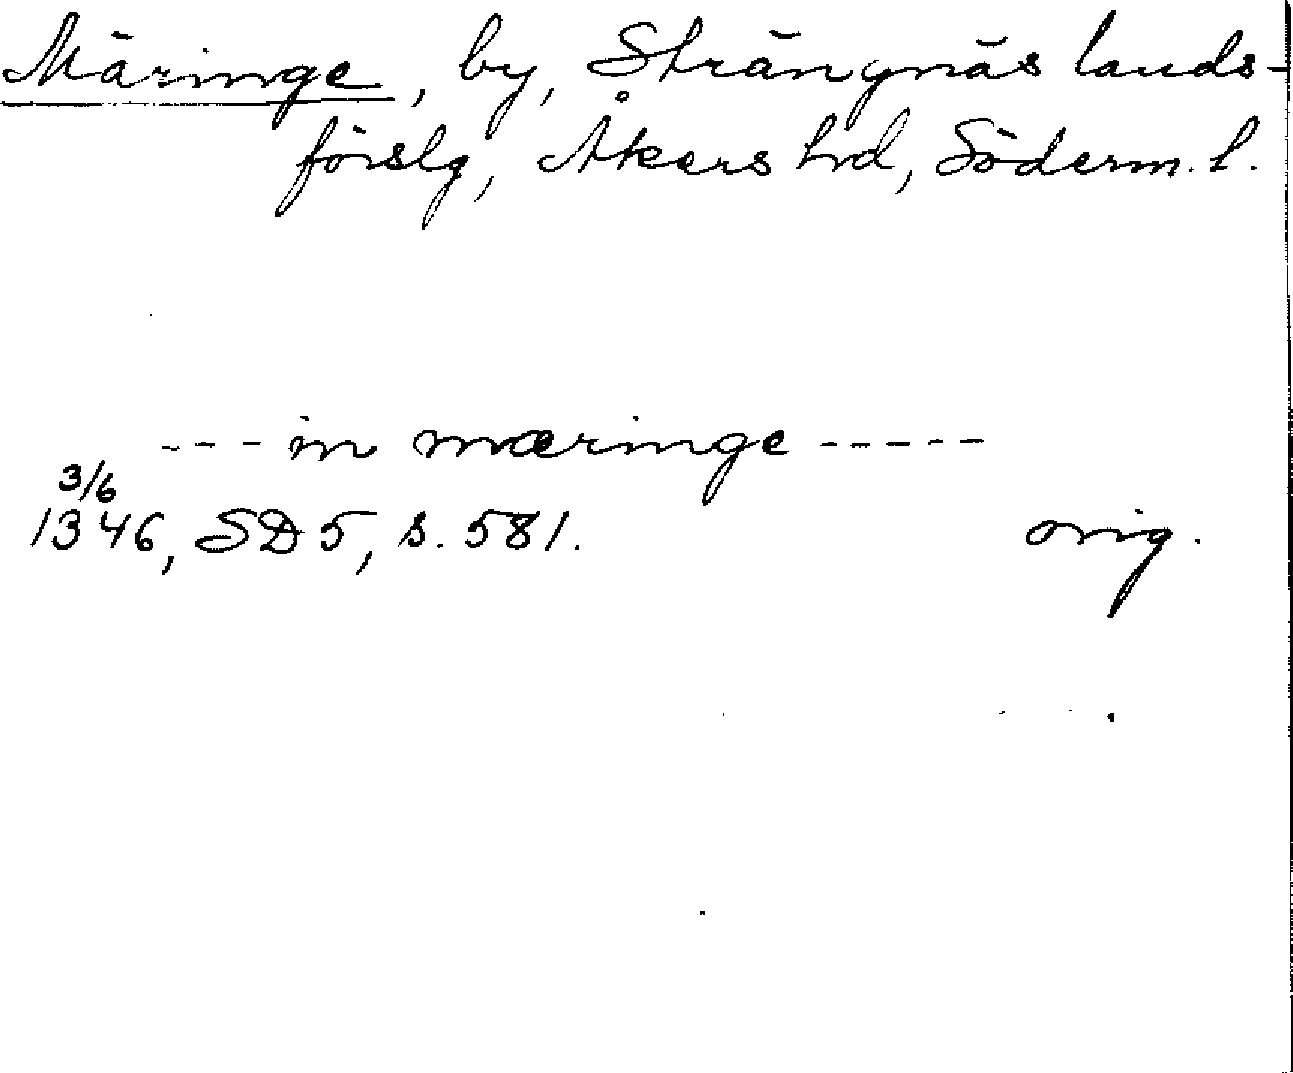 Märinge, by, Strängnäs lands-
förslg, Åkers hrd, Söderm. l.
--- in mæringe -----
3/6
1346, SD 5, s. 581. orig.